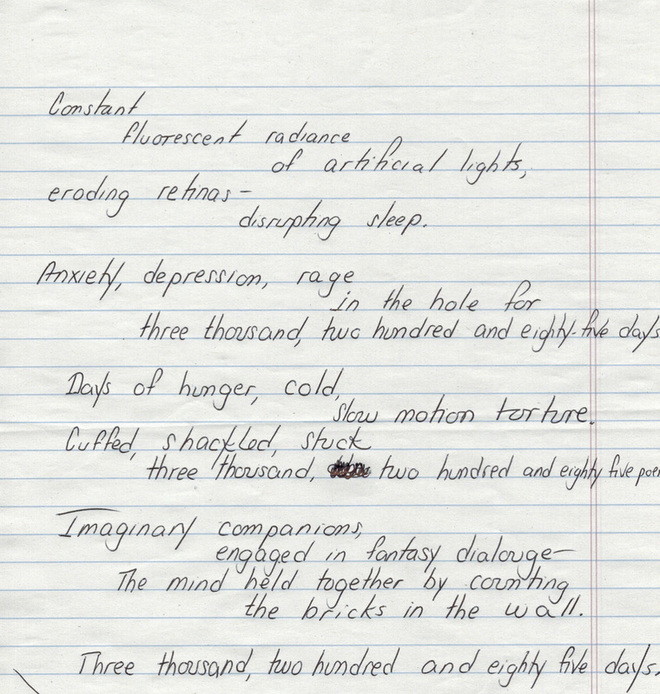 Constant
fluorescent radiance
of artificial lights,
eroding retinas-
disrupting sleep.
Anxiety, depression, rage
in the hole for
three thousand, two hundred and eighty-five days
Days of hunger, cold,
slow motion torture.
Cuffed, shackled, stuck
three thousand, two hundred and eighty five
Imaginary companions,
engaged in fantasy dialouge-
The mind held together by counting
the bricks in the wall.
Three thousand, two hundred and eighty five days.